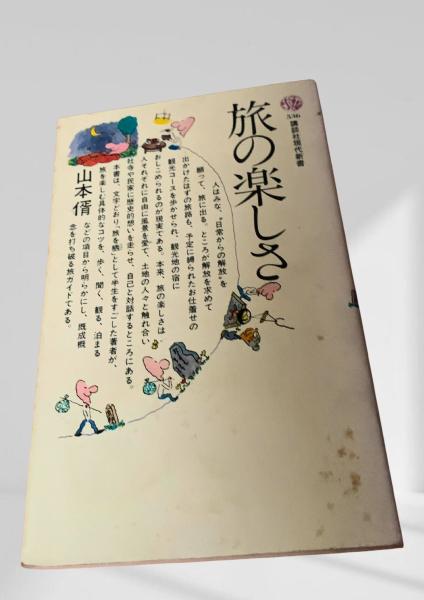 536
講談社現代新書
旅の楽しさ
人はみな、“日常からの解放”を
願って、旅に出る。ところが解放を求めて
出かけたはずの旅路も、予定に縛られたお仕着せの
観光コースを歩かせられ、観光地の宿に
おしこめられるのが現実である。本来、旅の楽しさは
人それぞれに自由に風景を愛で、土地の人々と触れ合い
社寺や民家に歴史的想いを走らせ、自己と対話するところにある。
本書は、文字どおり“旅を栖”として半生をすごした著者が、
旅を楽しむ具体的なコツを、歩く、聞く、観る、泊まる
などの項目から明らかにし、既成概
念を打ち破る旅ガイドである。
山本偦